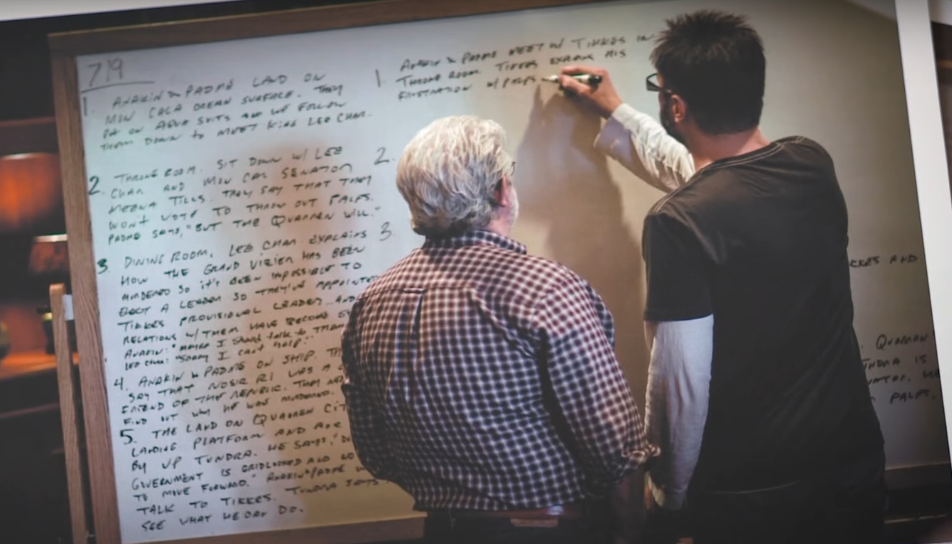 719
1. ANAKIN & PADMÉ LAND ON
MON CALA OCEAN SURFACE. THEY
PUT ON AQUA SUITS AND WE FOLLOW
THEM DOWN TO MEET KING LEE CHAR.
2. THRONE ROOM. SIT DOWN W/ LEE
CHAR AND MON CAL SENATOR
MEENA TILLS. THEY SAY THAT THEY
WON'T VOTE TO THROW OUT PALPS.
PADMÉ SAYS, "BUT THE QUARREN WILL."
3. DINING ROOM, LEE CHAR EXPLAINS
HOW THE GRAND VIZIER HAS BEEN
MURDERED SO IT'S BEEN IMPOSSIBLE TO
ELECT A LEADER SO THEY'VE APPOINTED
TIKKES PROVISIONAL LEADER AND
RELATIONS W/ THEM HAVE BECOME
ANAKIN: "MAYBE I SHOULD TALK TO THEM
LEE CHAR: "SORRY I CAN'T HELP."
4. ANAKIN & PADMÉ ON SHIP.
SAY THAT NOSSOR RI WAS A
FRIEND OF THE REPUBLIC. THEY
FIND OUT WHY HE WAS MURDERED.
5. THE LAND ON QUARREN CITY
LANDING PLATFORM AND ARE
BY UP TUNDRA. HE SAYS,
GOVERNMENT IS GRIDLOCKED AND
TO MOVE FORWARD." ANAKIN/PADMÉ
TALK TO TIKKES. TUNDRA SAYS
SEE WHAT HE CAN DO.
1. ANAKIN & PADMÉ MEET W/ TIKKES IN
THRONE ROOM. TIKKES EXPLAINS HIS
FRUSTRATION W/ PALPS
2.
3.
AND
QUARREN
IS
PALPS.